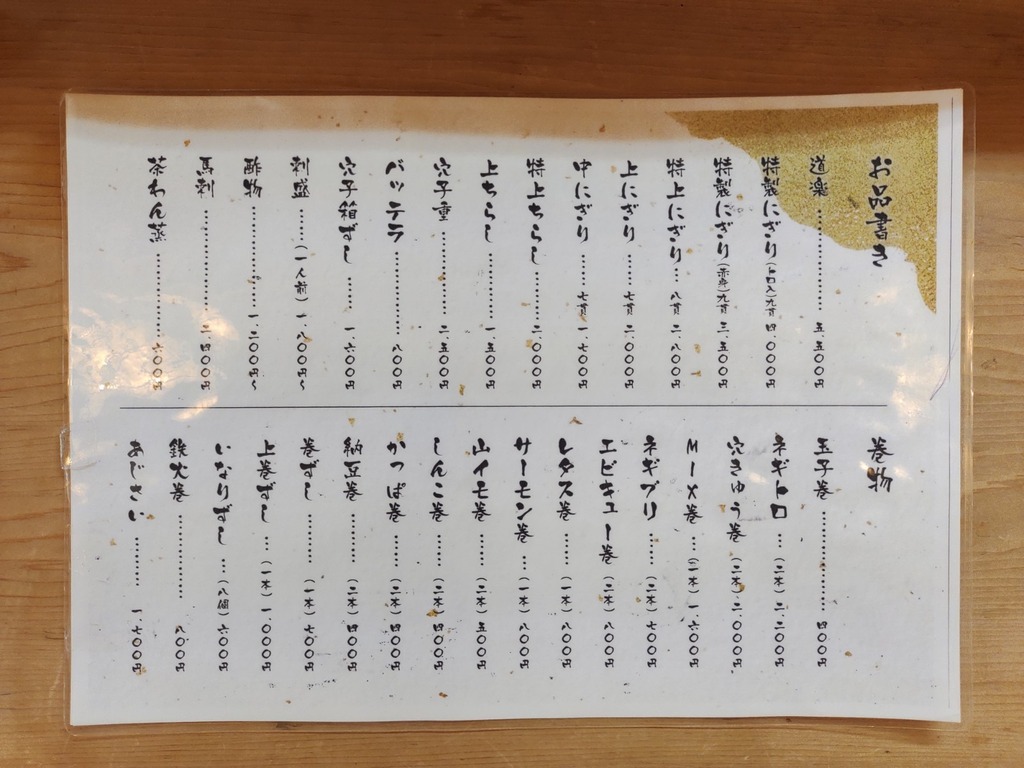 お品書き
道楽…………五、五〇〇円
特製にぎり(トロ入)九貫 四、〇〇〇円
特製にぎり(赤身)九貫 三、五〇〇円
特上にぎり…八貫 二、八〇〇円
上にぎり……七貫 二、〇〇〇円
中にぎり……七貫 一、七〇〇円
特上ちらし………二、〇〇〇円
上ちらし…………一、五〇〇円
穴子重……………二、五〇〇円
バッテラ……………八〇〇円
穴子箱ずし……一、六〇〇円
刺盛……(一人前)一、八〇〇円〜
酢物……………一、二〇〇円〜
馬刺………………二、四〇〇円
茶わん蒸……………六〇〇円
巻物
玉子巻……………四〇〇円
ネギトロ…(二本)二、二〇〇円
穴きゅう巻(二本)二、〇〇〇円
MIX巻…(一本)一、六〇〇円
ネギブリ……(二本)七〇〇円
エビキュー巻(二本)八〇〇円
レタス巻……(一本)八〇〇円
サーモン巻…(一本)八〇〇円
山イモ巻……(二本)五〇〇円
しんこ巻……(二本)四〇〇円
かっぱ巻……(二本)四〇〇円
納豆巻………(二本)四〇〇円
巻ずし………(一本)七〇〇円
上巻ずし…(一本)一、〇〇〇円
いなりずし…(八個)六〇〇円
鉄火巻……………八〇〇円
あじさい………一、七〇〇円